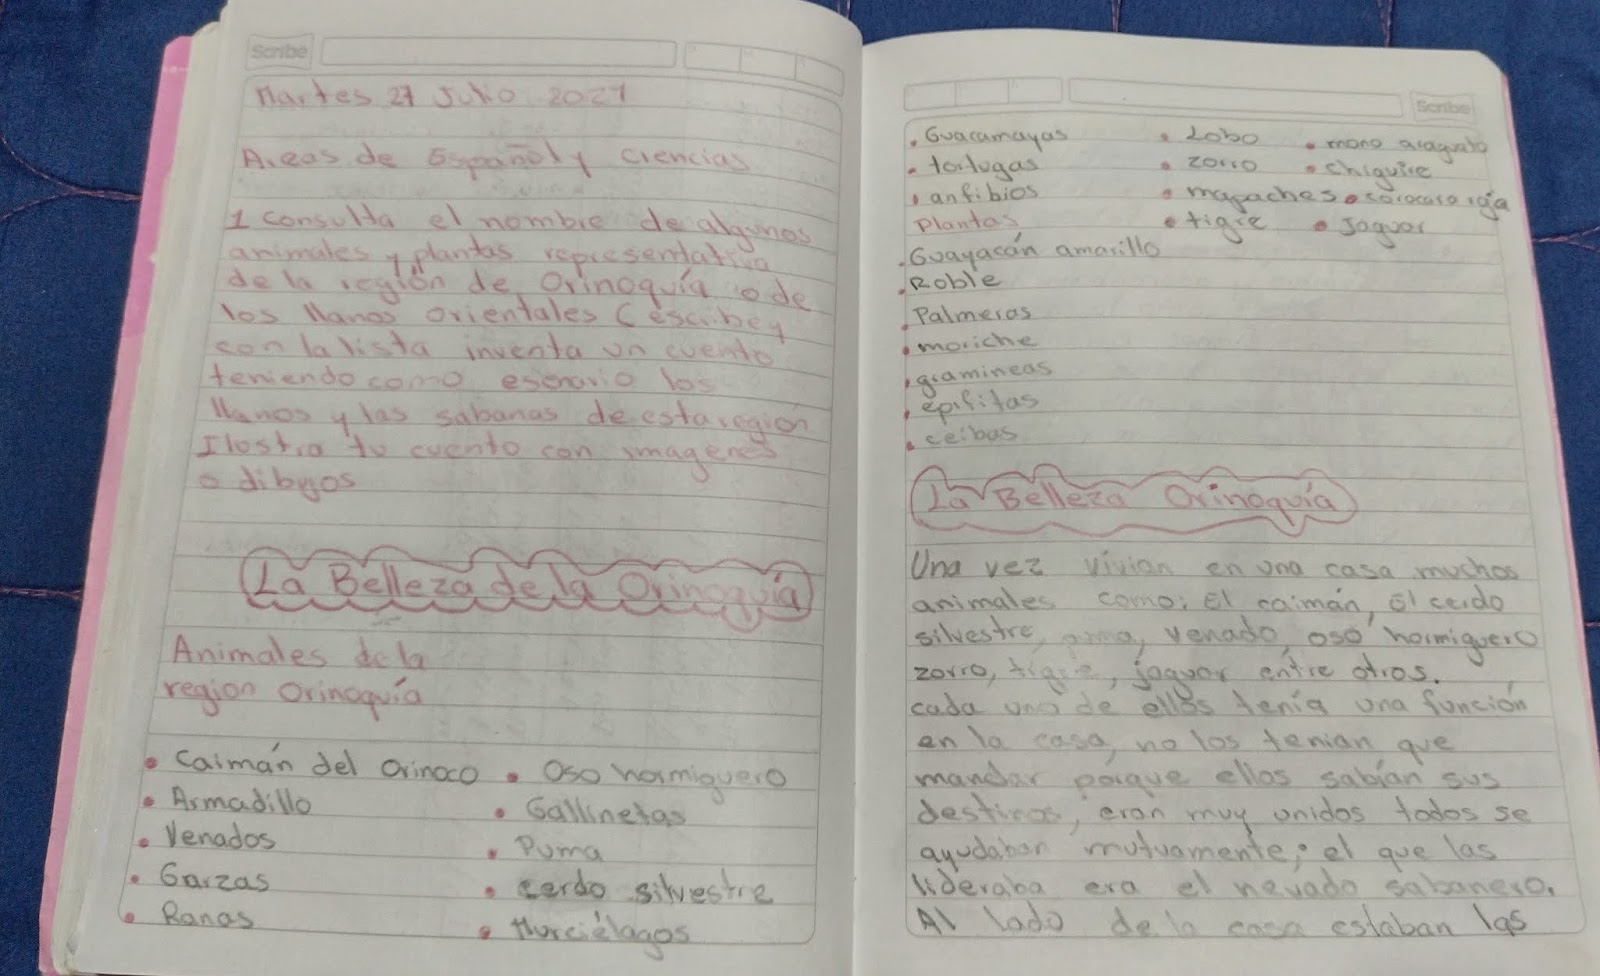 Scribe
Martes 27 Julio 2021
Areas de Español y ciencias
1 consulta el nombre de algunos
animales y plantas representativa
de la región de Orinoquía o de
los llanos orientales (escribe y
con la lista inventa un cuento
teniendo como esenario los
llanos y las sabanas de esta region
Ilostra tu cuento con imagenes
o dibujos
La Belleza de la Orinoquía
Animales de la
region orinoquía
• Caimán del orinoco • Oso hormiguero
• Armadillo • Gallinetas
• Venados • Puma
• Garzas • cerdo silvestre
• Ranas • Murciélagos
Scribe
• Guacamayas • Lobo • mono araguato
• tortugas • zorro • chiguire
• anfibios • mapaches • corocoro roja
Plantas • tigre • Jaguar
• Guayacán amarillo
• Roble
• Palmeras
• moriche
• gramineas
• epifitas
• ceibas
La Belleza Orinoquía
Una vez vivian en una casa muchos
animales como: El caimán, El cerdo
silvestre, venado, oso hormiguero
zorro, tigre, jaguar entre otros.
cada uno de ellos tenía una función
en la casa, no los tenian que
mandar porque ellos sabían sus
destinos, eran muy unidos todos se
ayudaban mutuamente, el que las
lideraba era el nevado sabanero.
Al lado de la casa estaban las